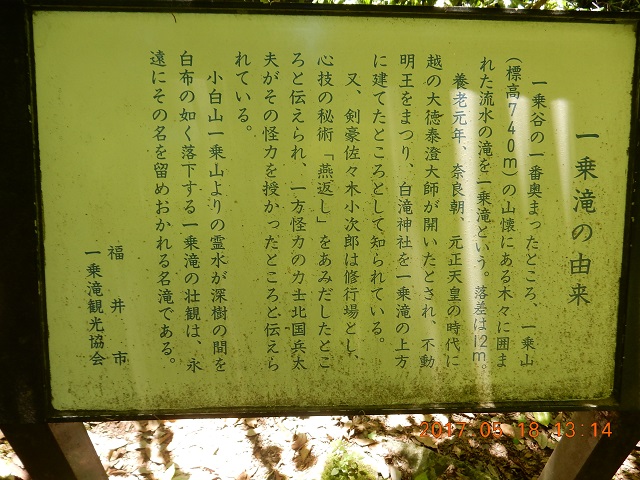 一乗滝の由来
一乗谷の一番奥まったところ、一乗山
(標高740m)の山懐にある木々に囲ま
れた流水の滝を一乗滝という。落差は12m。
養老元年、奈良朝、元正天皇の時代に
越の大徳泰澄大師が開いたとされ 不動
明王をまつり、白滝神社を一乗滝の上方
に建てたところとして知られている。
又、剣豪佐々木小次郎は修行場とし、
心技の秘術「燕返し」をあみだしたとこ
ろと伝えられ、一方怪力の力士北国兵太
夫がその怪力を授かったところと伝えら
れている。
小白山一乗山よりの霊水が深樹の間を
白布の如く落下する一乗滝の壮観は、永
遠にその名を留めおかれる名滝である。
福井市
一乗滝観光協会
2017 05 18 13:14